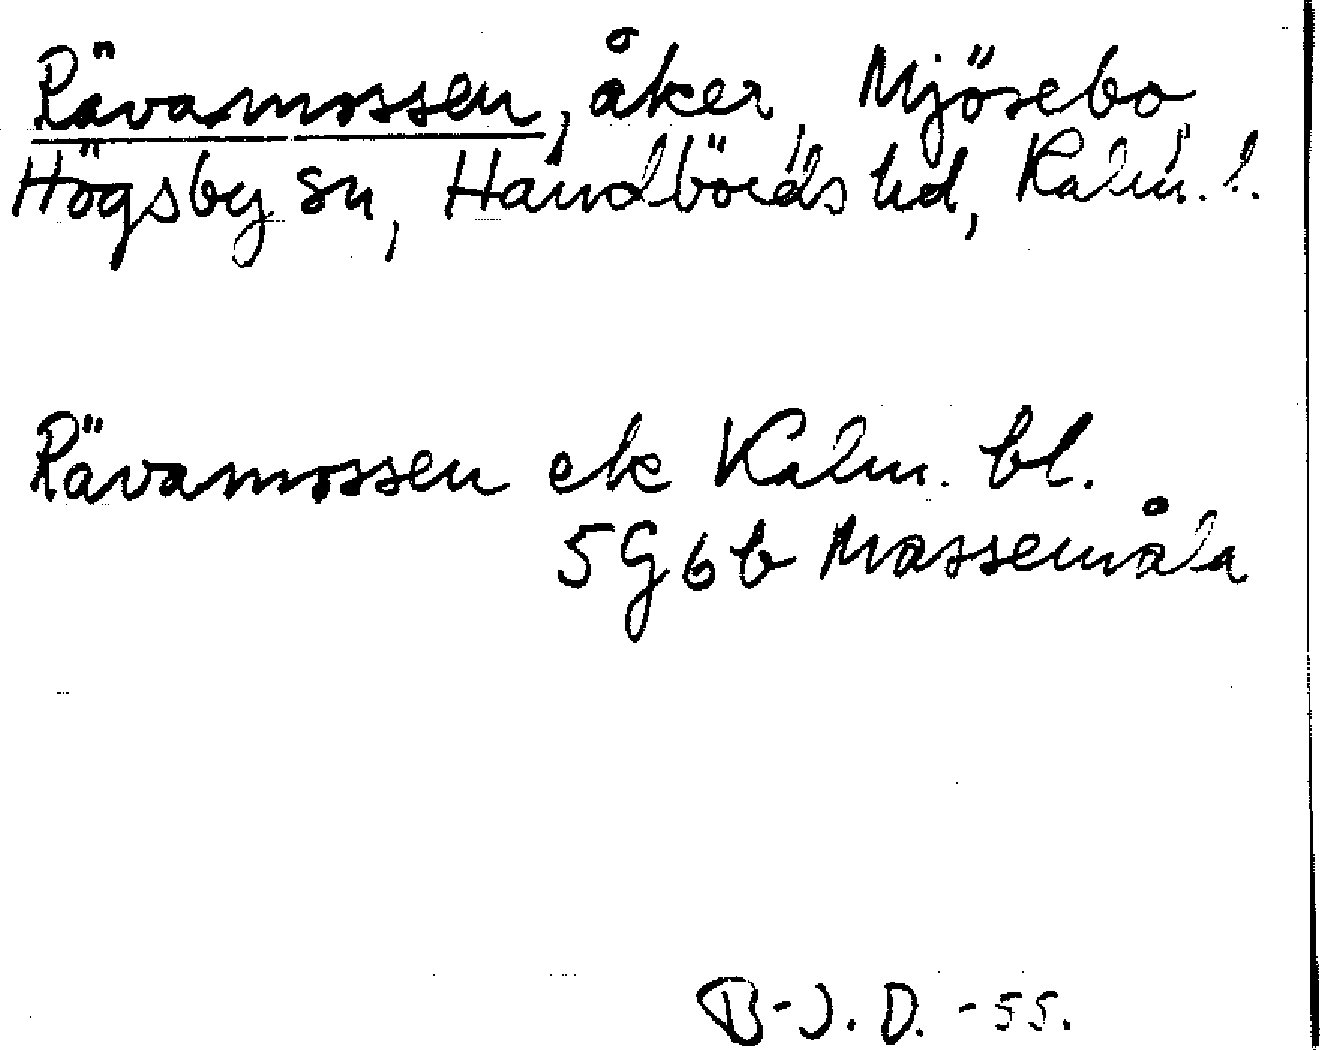 Rävamossen, åker, Mjösebo,
Högsby sn, Handbörds hd, Kalm. l.
Rävamossen ek Kalm. bl.
5G6b Mossemåla
B-J. D. -55.